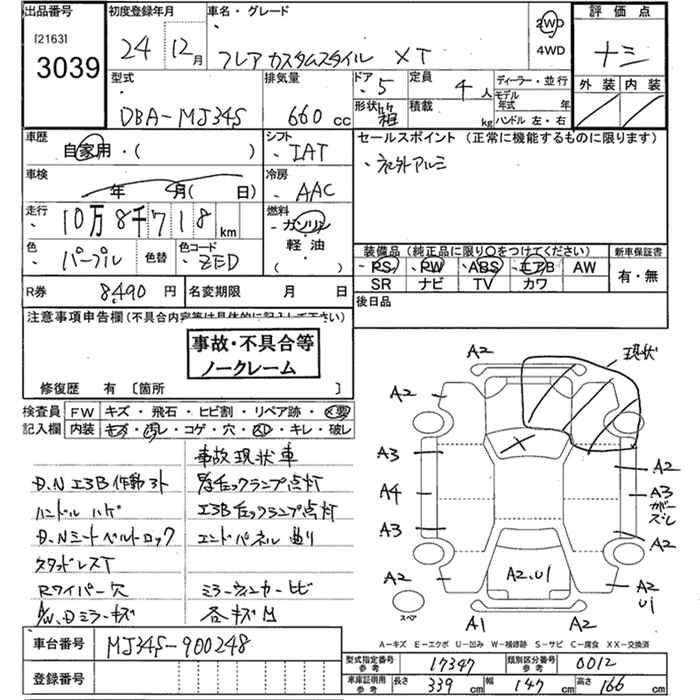 出品番号
[2163]
3039
初度登録年月
24年 12月
車名・グレード
フレア カスタムスタイル XT
2WD
4WD
評価点
十三
外装 内装
型式
DBA-MJ34S
排気量
660 cc
ドア 5
定員 4人
形状
積載 kg
ディーラー・並行
モデル年式 年
ハンドル 左・右
車歴
自家用・( )
シフト
IAT
セールスポイント (正常に機能するものに限ります)
・社外アルミ
車検
年 月( 日)
冷房
AAC
走行
10万8千718 km
燃料
ガソリン
軽油
( )
色
パープル
色替
色コード
ZED
装備品 (純正品に限り○をつけてください)
PS PW ABS エアB AW
SR ナビ TV カワ
新車保証書
有・無
R券 8,490 円
名変期限 月 日
後日品
注意事項申告欄(不具合内容等は具体的に記入して下さい)
事故・不具合等
ノークレーム
修復歴 有〔箇所 〕
検査員記入欄
FW キズ・飛石・ヒビ割・リペア跡・X要
内装 キズ・汚れ・コゲ・穴・凹・キレ・破レ
事故現状車
D.NエアB作動
ハンドルハゲ
エアBチェックランプ点灯
D.Nシートベルトロック
エンドパネル曲り
スタッドレスT
Rワイパー欠
ミラーウィンカーヒビ
A/W、Dミラーキズ
各キズ凹
車台番号 MJ34S-900248
登録番号
現状
A2
A2
A3
A4
A3
A2
A2
A3
ガーズレ
A2
A2
U1
A2.U1
A1
A2
スペア
A-キズ E-エクボ U-凹み W-補修跡 S-サビ C-腐食 XX-交換済
型式指定番号参考 17347
類別区分番号参考 0012
車庫証明用参考 長さ 339 cm 幅 147 cm 高さ 166 cm